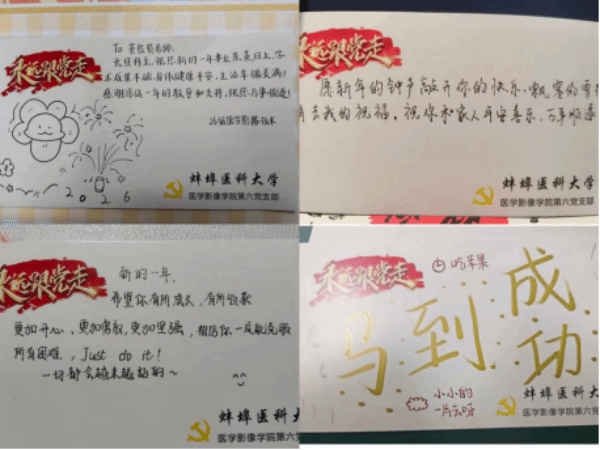 永远跟党走
To 
元旦将至,祝您新的一年事业蒸蒸日上,学
术成果丰硕,身体健康平安,生活幸福美满!
感谢您这一年的教导和支持,祝您万事顺遂!
2026
蚌埠医科大学
医学影像学院第六党支部
永远跟党走
愿新年的钟声敲开你的快乐,飘零的雪
去我的祝福。祝你和家人平安喜乐,万事顺遂
蚌埠医科大学
医学影像学院第六党支部
永远跟党走
新的一年,
希望你有所成长,有所收获
更加开心、更加勇敢,更加坚强,相信你一定能克服
所有困难,Just do it!
一切都会越来越好的~
蚌埠医科大学
医学影像学院第六党
永远跟党走
吃苹果
马到成功
小小的
一片云呀
蚌埠医科大
医学影像学院第六党支